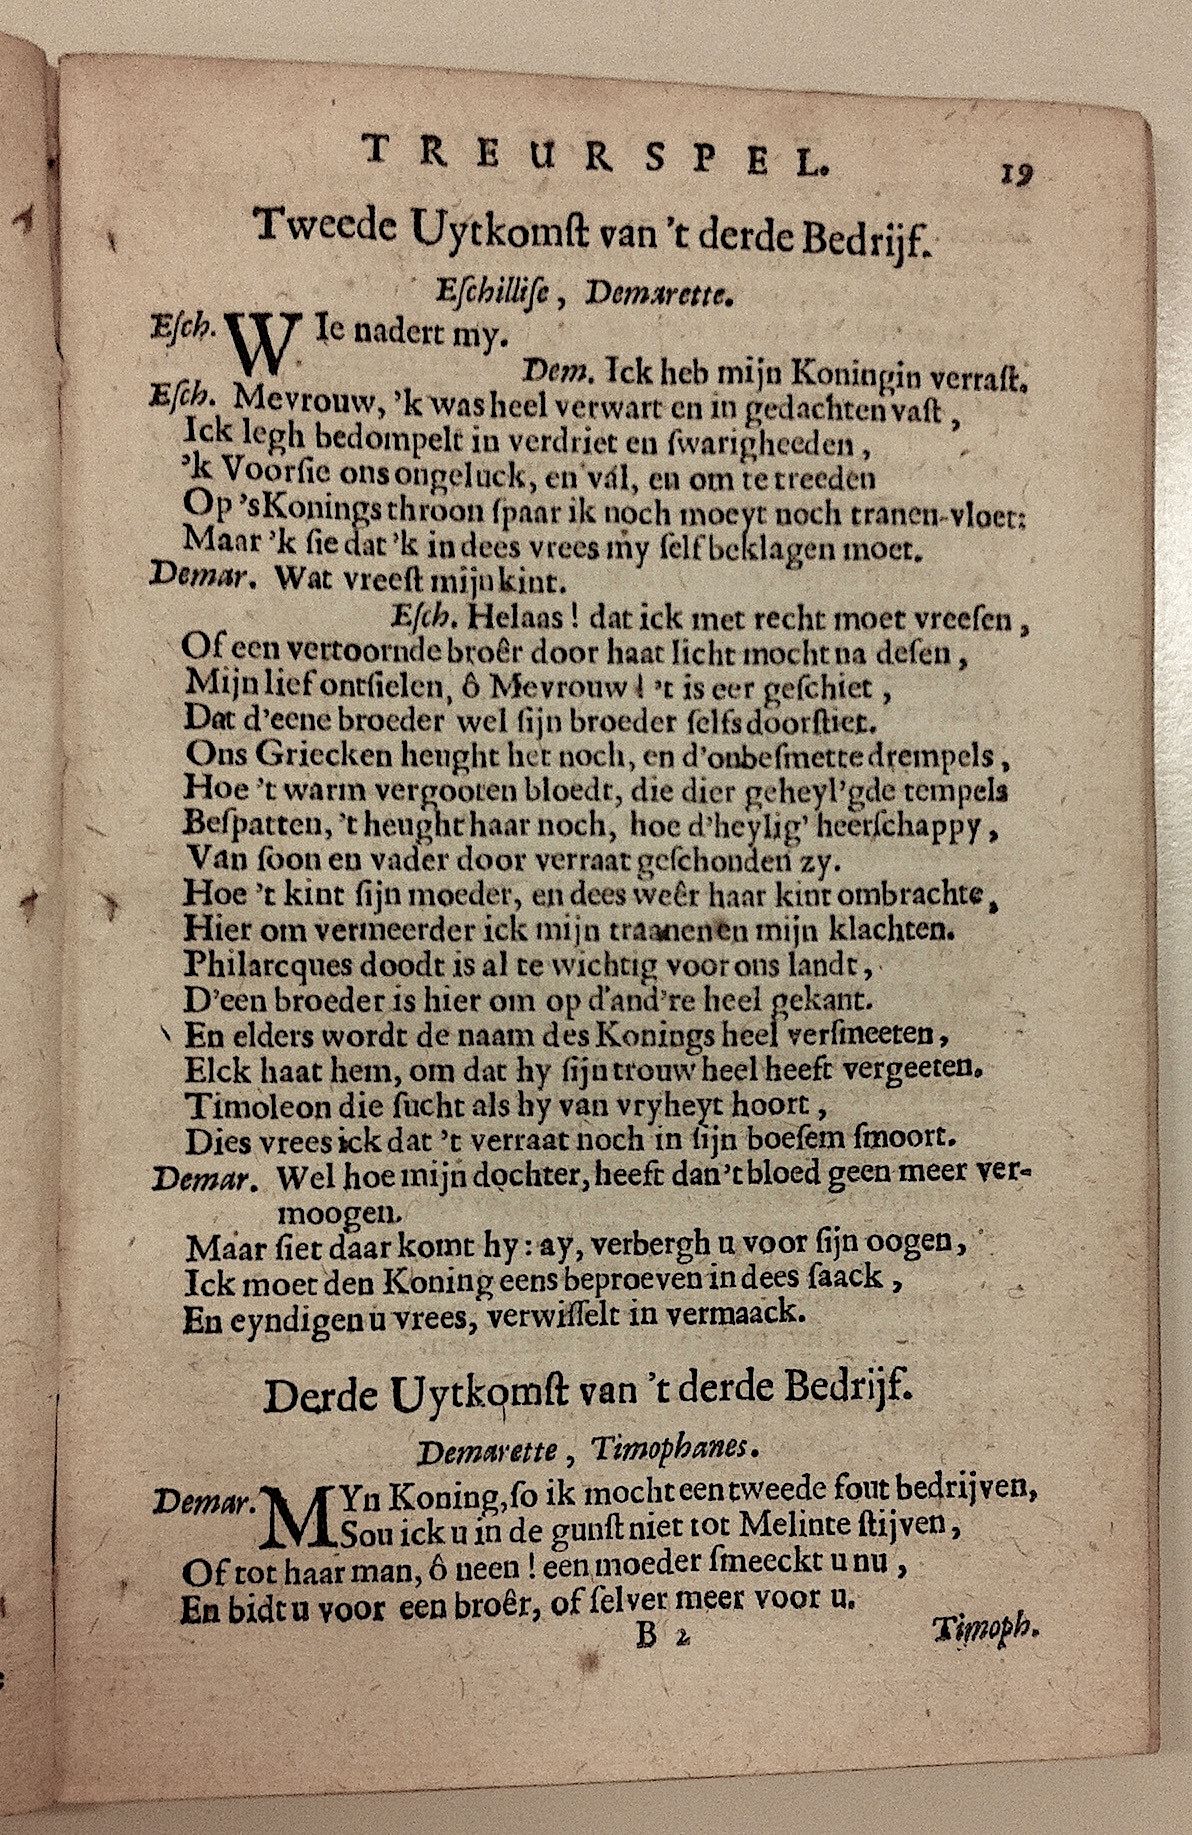 TREURSPEL. 19
Tweede Uytkomſt van 't derde Bedrijf.
Eſchilliſe, Demarette.
Eſch. WIe nadert my.
Dem. Ick heb mijn Koningin verraſt.
Eſch. Mevrouw, 'k was heel verwart en in gedachten vaſt,
Ick legh bedompelt in verdriet en ſwarigheeden,
'k Voorſie ons ongeluck, en val, en om te treeden
Op 's Konings throon ſpaar ik noch moeyt noch tranen-vloet:
Maar 'k ſie dat 'k in dees vrees my ſelf beklagen moet.
Demar. Wat vreeſt mijn kint.
Eſch. Helaas! dat ick met recht moet vreeſen,
Of een vertoornde broêr door haat licht mocht na deſen,
Mijn lief ontſielen, ô Mevrouw! 't is eer geſchiet,
Dat d'eene broeder wel ſijn broeder ſelfs doorſtiet.
Ons Griecken heught het noch, en d'onbeſmette drempels,
Hoe 't warm vergooten bloedt, die dier geheyl'gde tempels
Beſpatten, 't heught haar noch, hoe d'heylig' heerſchappy,
Van ſoon en vader door verraat geſchonden zy.
Hoe 't kint ſijn moeder, en dees weêr haar kint ombrachte,
Hier om vermeerder ick mijn traanen en mijn klachten.
Philarcques doodt is al te wichtig voor ons landt,
D'een broeder is hier om op d'and're heel gekant.
En elders wordt de naam des Konings heel verſmeeten,
Elck haat hem, om dat hy ſijn trouw heel heeft vergeeten.
Timoleon die ſucht als hy van vryheyt hoort,
Dies vrees ick dat 't verraat noch in ſijn boeſem ſmoort.
Demar. Wel hoe mijn dochter, heeft dan 't bloed geen meer ver-
moogen.
Maar ſiet daar komt hy: ay, verbergh u voor ſijn oogen,
Ick moet den Koning eens beproeven in dees ſaack,
En eyndigen u vrees, verwiſſelt in vermaack.
Derde Uytkomſt van 't derde Bedrijf.
Demarette, Timophanes.
Demar. MYn Koning, ſo ik mocht een tweede fout bedrijven,
Sou ick u in de gunſt niet tot Melinte ſtijven,
Of tot haar man, ô neen! een moeder ſmeeckt u nu,
En bidt u voor een broêr, of ſelver meer voor u.
B 2 Timoph.